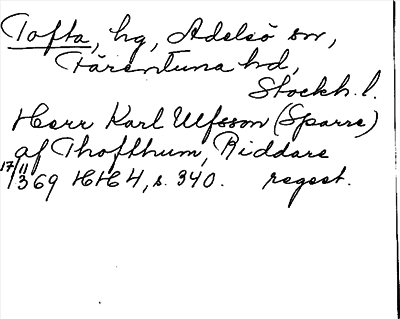 Tofta, hg, Adelsö sn,
Färentuna hd,
Stockh. l.
Herr Karl Ulfsson (Sparre)
af Thofthum, Riddare
17/11 1369 HH 4, s. 340. regest.